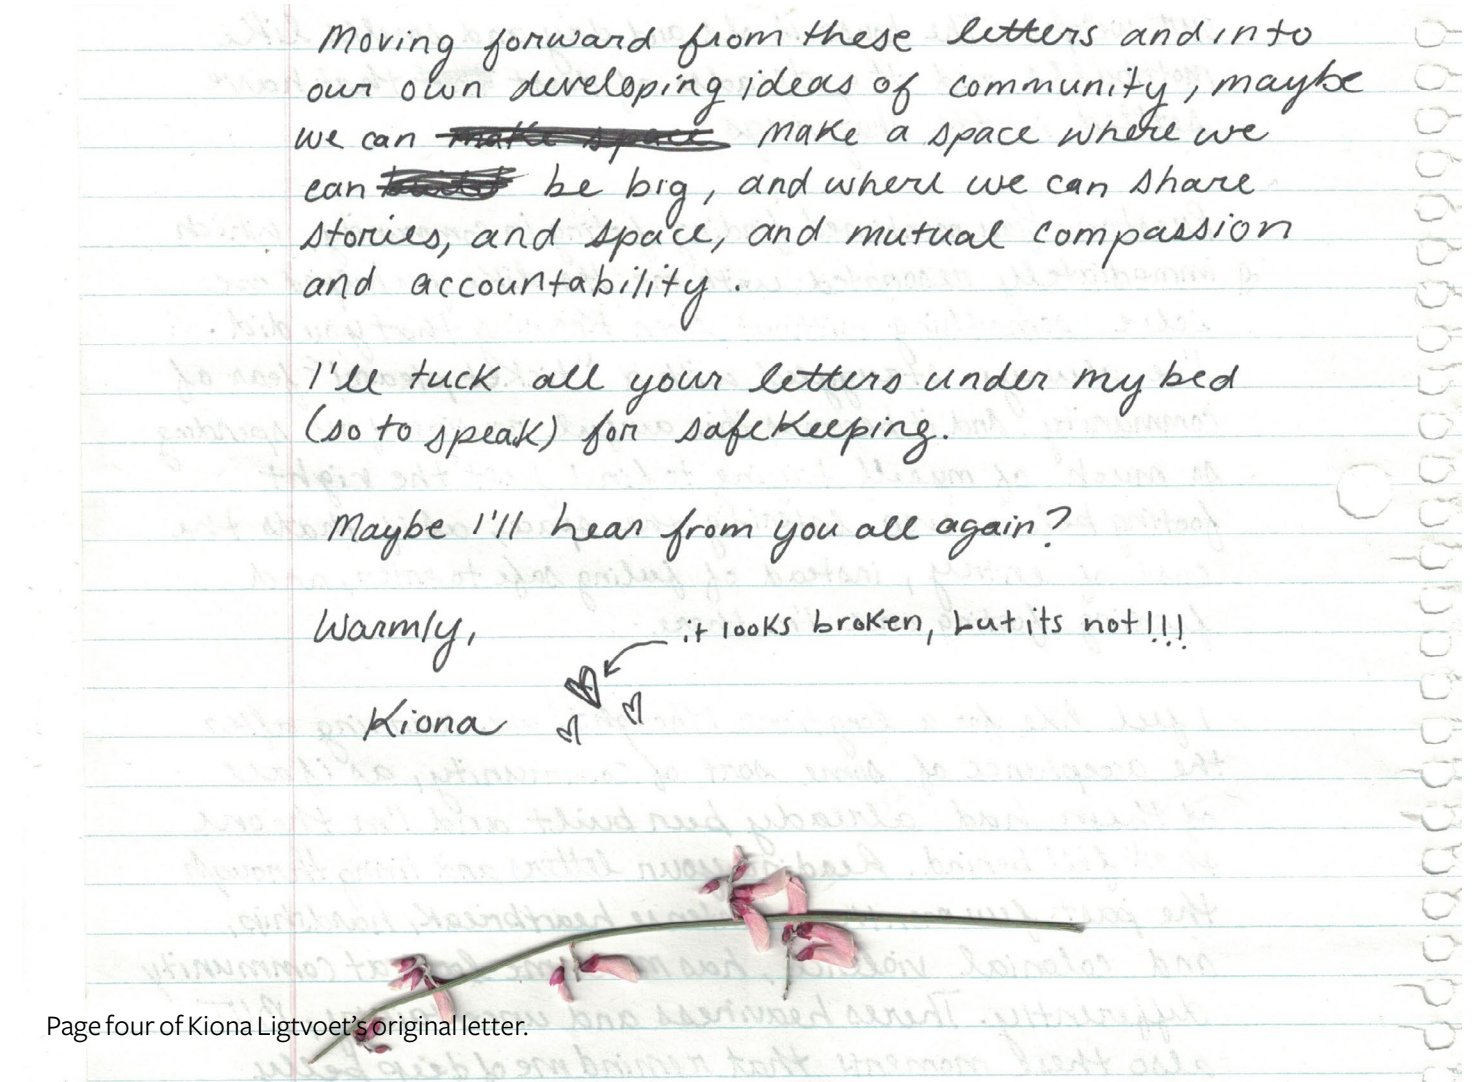 Moving forward from these letters and into
our own developing ideas of community, maybe
we can make space make a space where we
can be big, and where we can share
stories, and space, and mutual compassion
and accountability.
I'll tuck all your letters under my bed
(so to speak) for safekeeping.
Maybe I'll hear from you all again?
Warmly,
it looks broken, but its not!!!
Kiona
Page four of Kiona Ligtvoet's original letter.